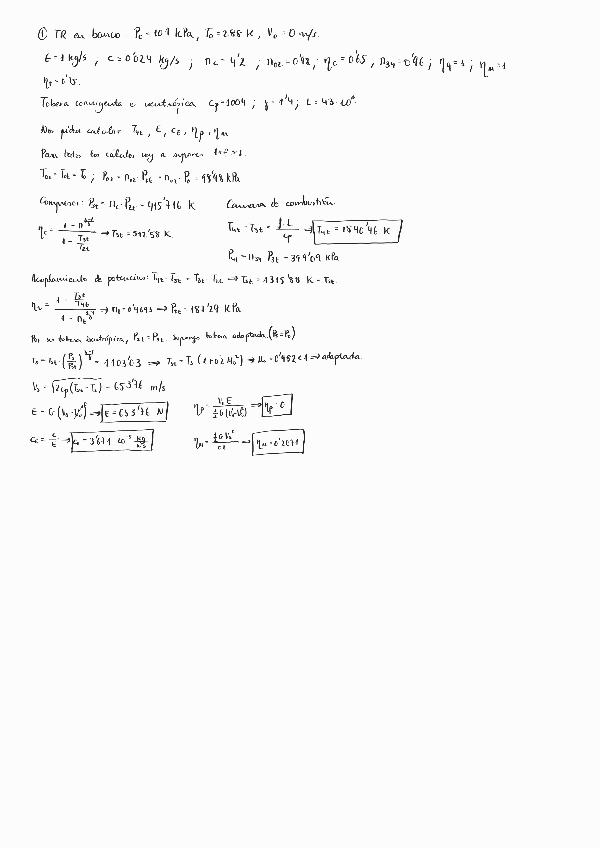 ① TR en banco P₀ = 101 kPa, T₀ = 288 K, V₀ = 0 m/s.
G = 1 kg/s , c = 0'024 kg/s ; π_c = 4'2 ; π₀₂ = 0'98 ; η_c = 0'65 , π₃₄ = 0'96 ; η_q = 1 ; η_m = 1
η_t = 0'75.
Tobera convergente e isentrópica c_p = 1004 ; γ = 1'4 ; L = 43·10⁶.
Nos piden calcular T₄t , E , c_E , η_p , η_m
Para todos los cálculos voy a suponer 1+f ≈ 1.
T₀t = T₂t = T₀ ; P₀₂ = π₀₂·P₀t = π₀₂·P₀ = 98'98 kPa
Compresor: P₃t = π_c·P₂t = 415'716 K Cámara de combustión
T₄t - T₃t = f·L / c_p → T₄t = 1840'46 K
→ T₃t = 512'58 K
P₄t = π₃₄ P₃t = 399'09 kPa
Acoplamiento de potencias: T₄t - T₅t = T₃t - T₂t → T₅t = 1315'88 K = T₈t.
→ π_t = 0'4693 → P₅t = 187'29 kPa
Por ser tobera isentrópica, P₈t = P₅t. Supongo tobera adaptada (P₈ = P₀)
= 1103'03 ⇒ T₈t = T₈ (1+0'2 M₈²) → M₈ = 0'982 < 1 ⇒ adaptada.
V₈ = √(2c_p(T₈t - T₈)) = 653'76 m/s
E = G (V₈ - V₀) → E = 653'76 N
η_p = V₀ E / ½G(V₈² - V₀²) ⇒ η_p = 0
c_E = c/E → c_E = 3'671·10⁻⁵ kg/N·s
η_m = ½GV₈² / cL → η_m = 0'2071